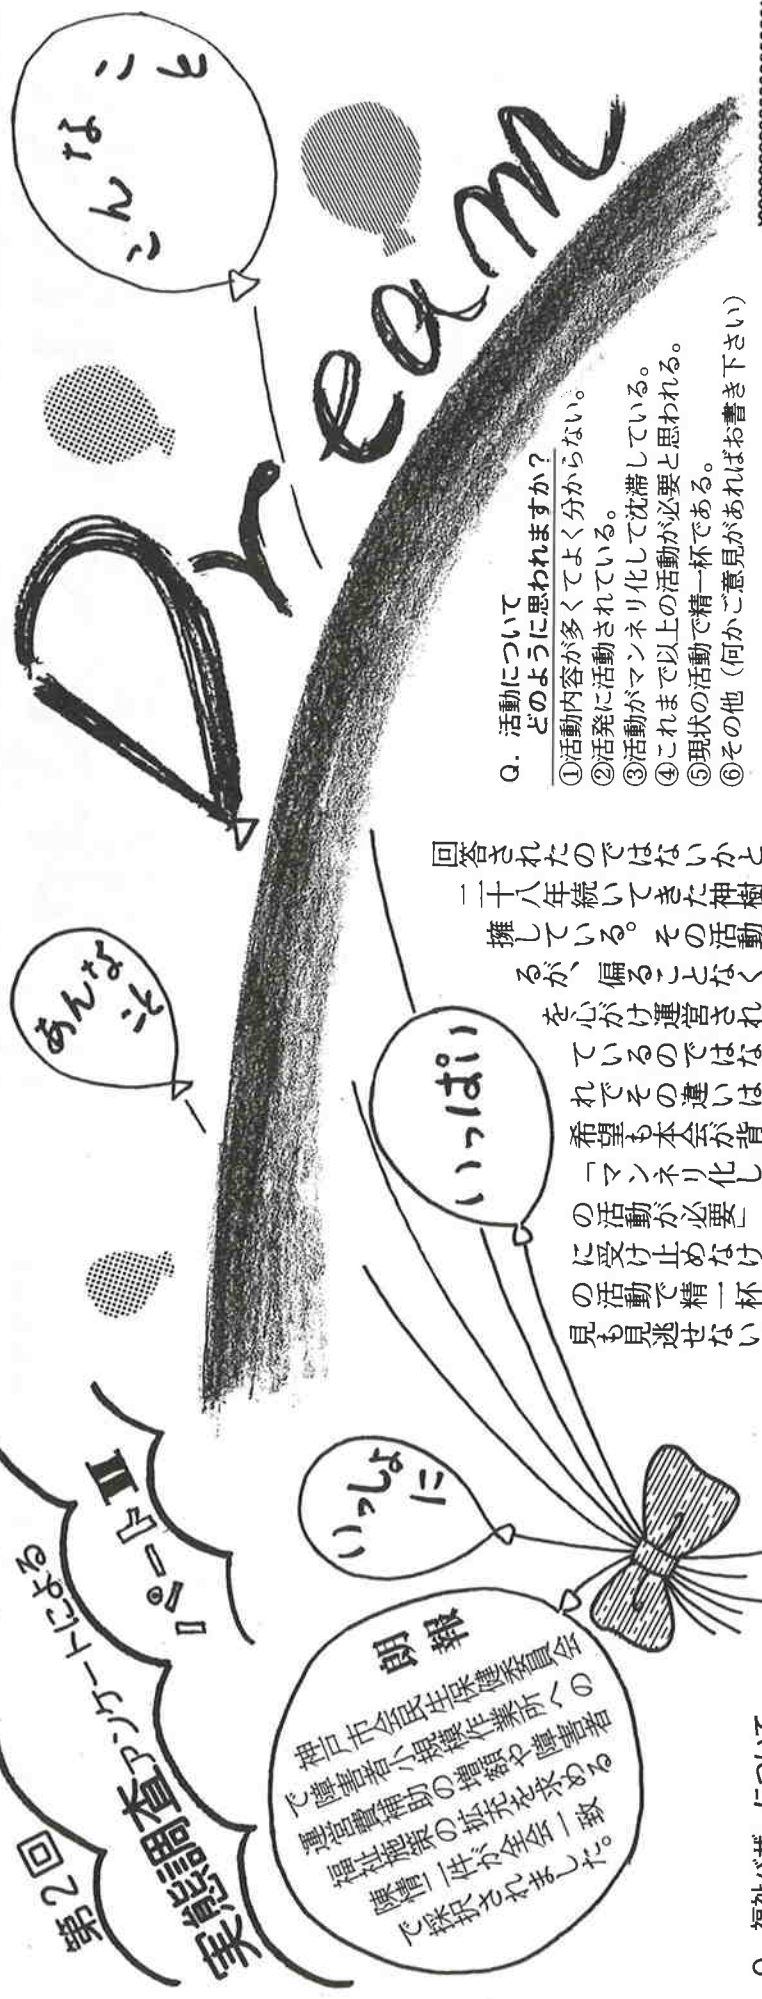 第2回
実態調査アンケートによる
パートⅡ
朗報
神戸市会民生保健委員会
で障害者小規模作業所への
運営費補助の増額や障害者
福祉施策の拡充を求める
陳情二件が全会一致
で採択されました。
いっしょ
に
いっぱい
あんな
こと
こんな
こと
Dream
Q. 活動について
どのように思われますか?
①活動内容が多くてよく分からない。
②活発に活動されている。
③活動がマンネリ化して沈滞している。
④これまで以上の活動が必要と思われる。
⑤現状の活動で精一杯である。
⑥その他(何かご意見があればお書き下さい)
回答されたのではないかと
二十八年続いてきた神樹
擁している。その活動
るが、偏ることなく
を心がけ運営され
ているのではな
れでその違いは
希望も本会が背
「マンネリ化し
の活動が必要」
に受け止めなけ
の活動で精一杯
見も見逃せない
Q. 福祉バザーについて